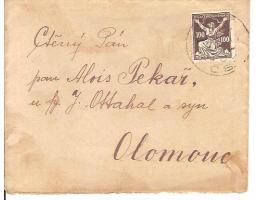 Ctěný Pán
pan Alois Pekař,
u fy J. Ottahal a syn
Olomouc
100 100